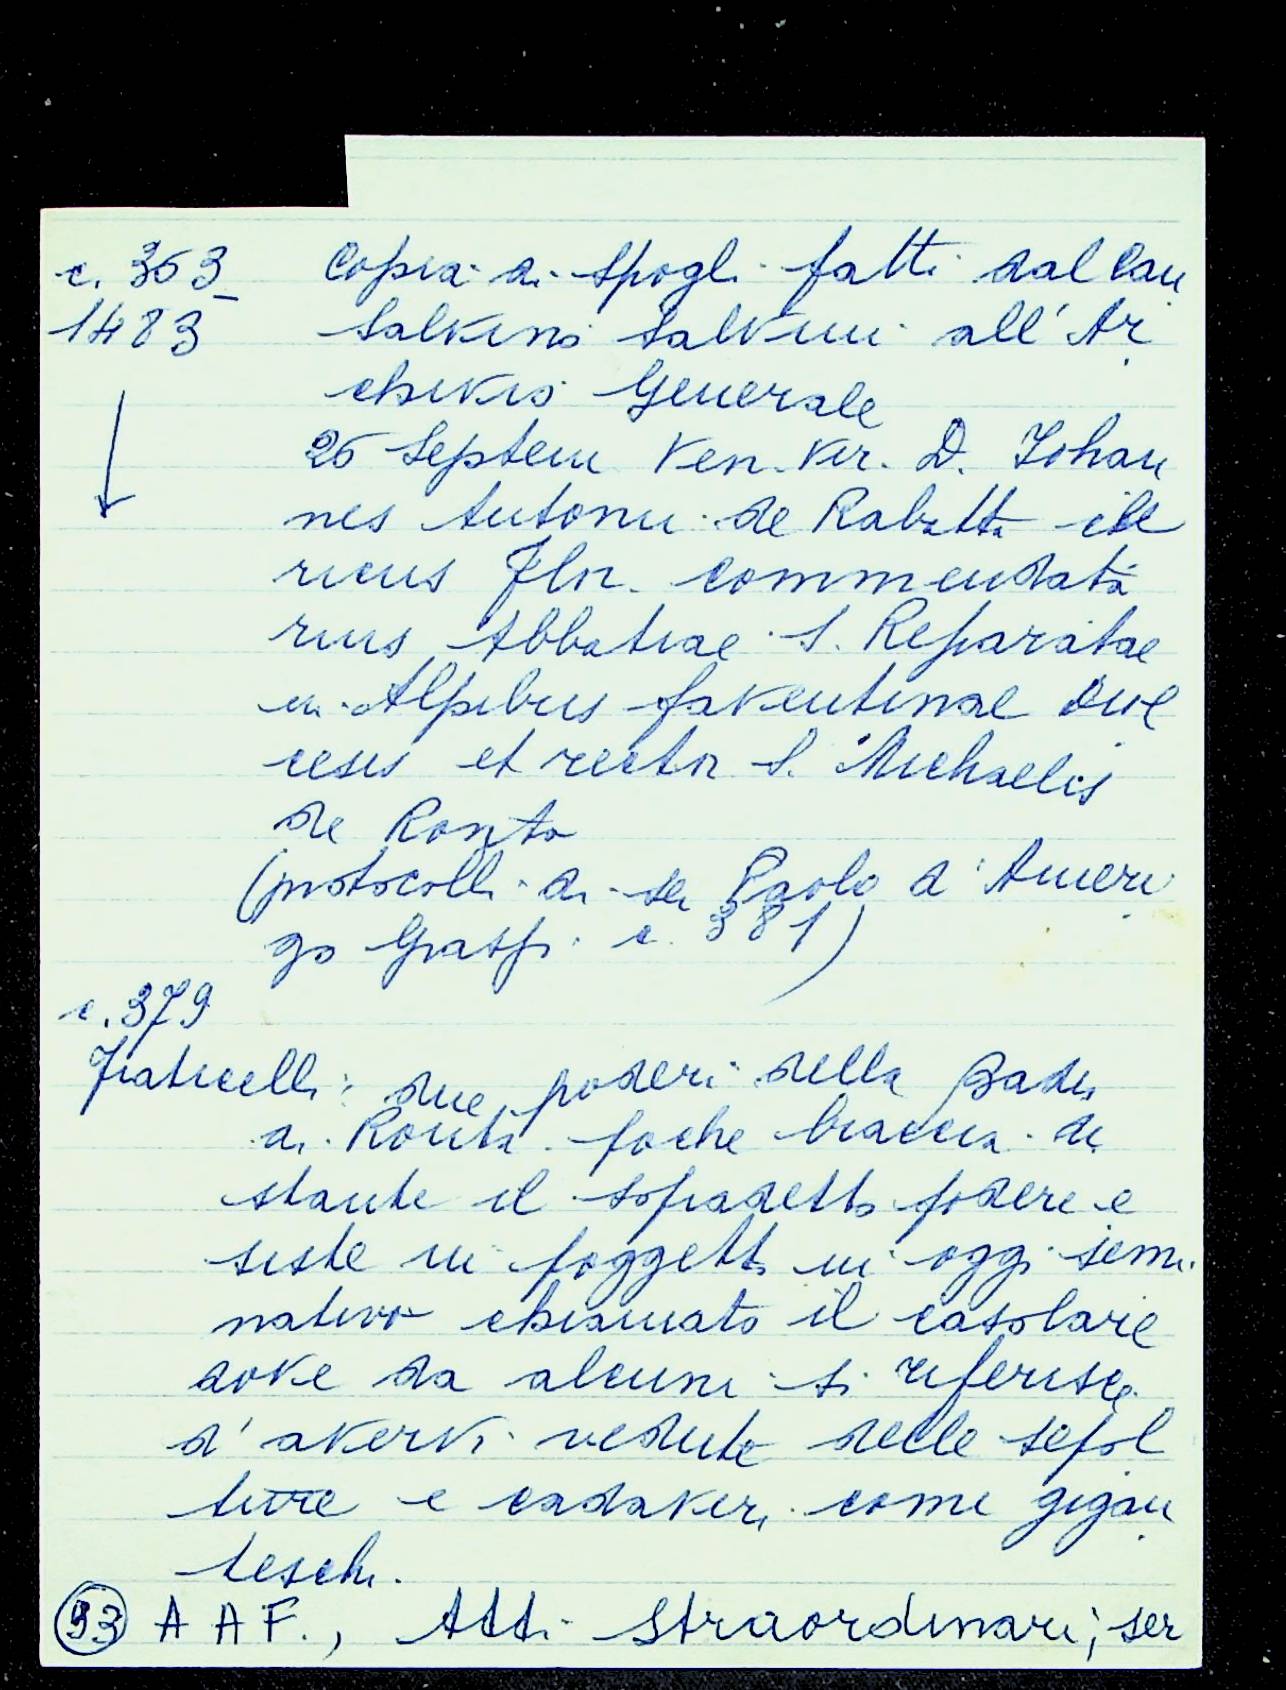 c. 353 Copia di spogli fatti dal Can
1483 Salvino Salvini all'Ar
chivio Generale
26 Septem Ven. Vir. D. Johan
nes Antonii de Rabatta cle
ricus Flor. commendata
rius Abbatiae S. Reparatae
in Alpibus faventinae dioe
cesis et rector S. Michaelis
de Ronta
(protocolli di ser Paolo d'Ameri
go Grassi c. 381)
c. 379
Fraticelli: due poderi della Badia
di Ronta poche braccia di
stante il sopradetto podere e
siste un poggetto in oggi semi
nativo chiamato il casolare
dove da alcuni si riferisce
d'avervi vedute delle sepol
ture e cadaveri come gigan
teschi.
93 A A F., Atti Straordinari, ser